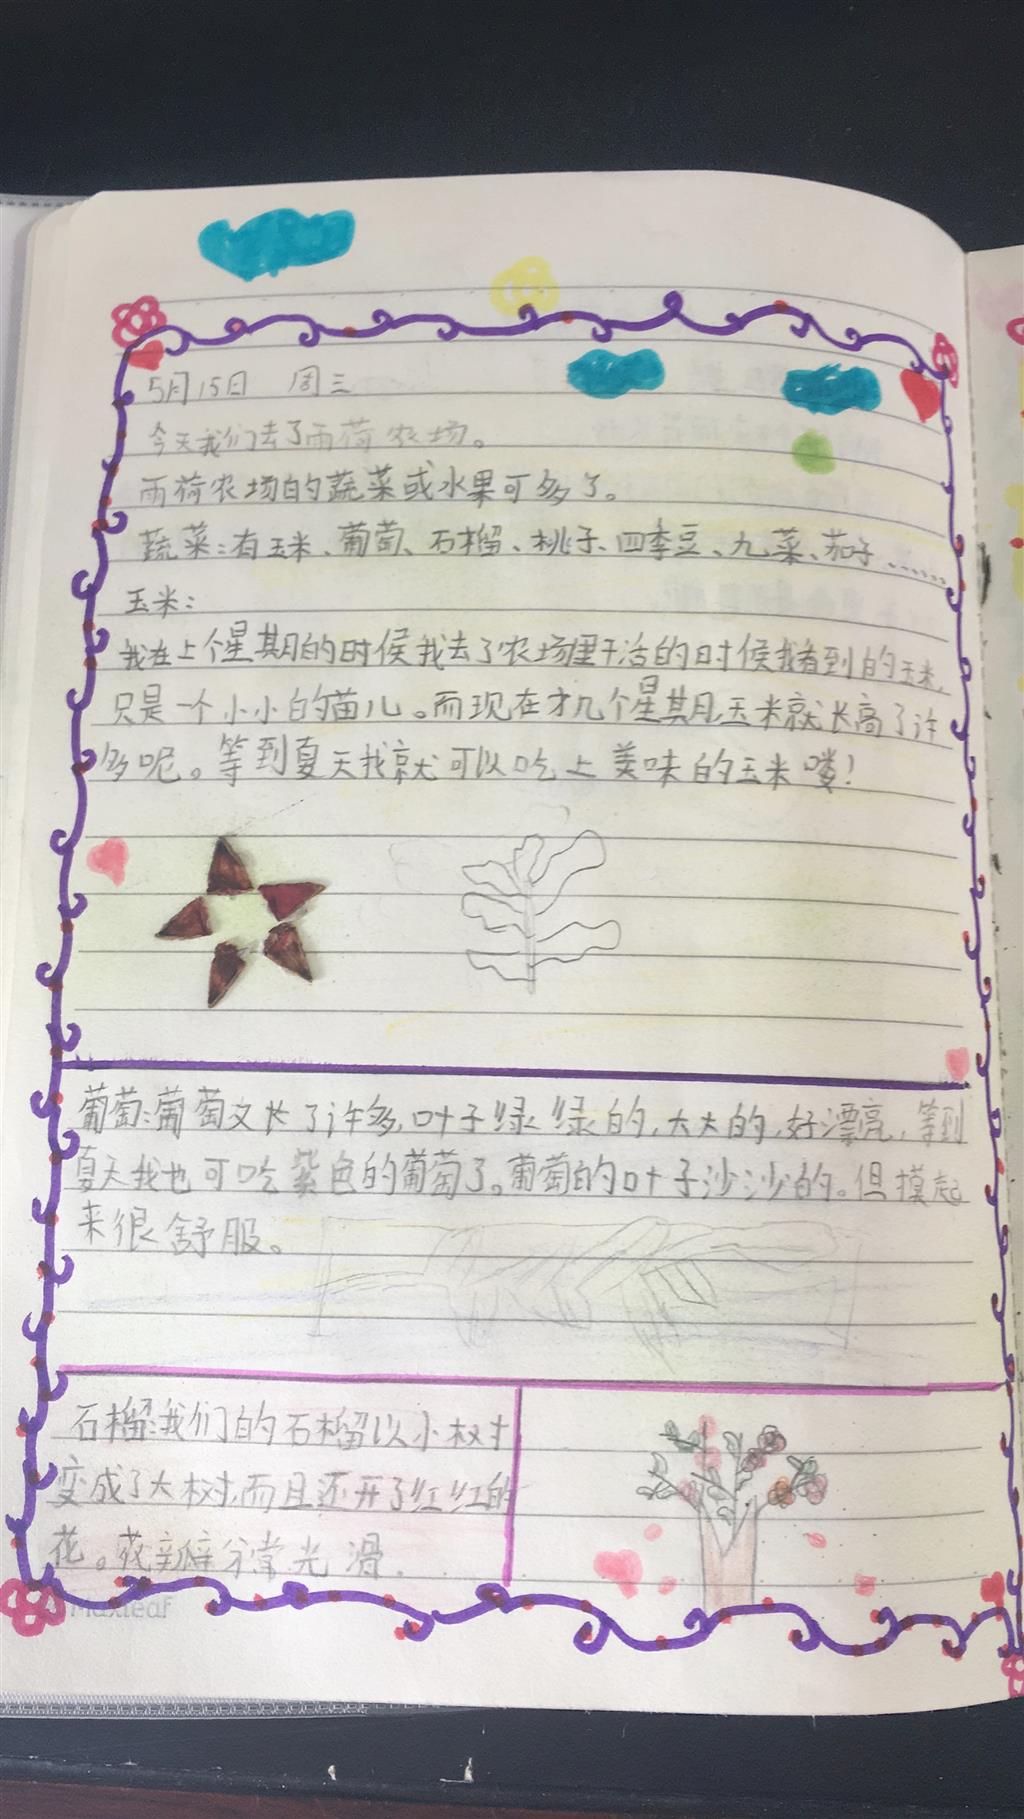 5月15日 周三
今天我们去了雨荷农场。
雨荷农场的蔬菜或水果可多了。
蔬菜:有玉米、葡萄、石榴、桃子、四季豆、九菜、茄子......
玉米:
我在上个星期的时候我去了农场里干活的时候我看到的玉米,
只是一个小小的苗儿。而现在才几个星期,玉米就长高了许
多呢。等到夏天我就可以吃上美味的玉米喽!
葡萄:葡萄又长了许多,叶子绿绿的,大大的,好漂亮,等到
夏天我也可吃紫色的葡萄了。葡萄的叶子沙沙的。但摸起
来很舒服。
石榴:我们的石榴以小树
变成了大树,而且还开了红红的
花。花瓣分常光滑.
Maxleaf